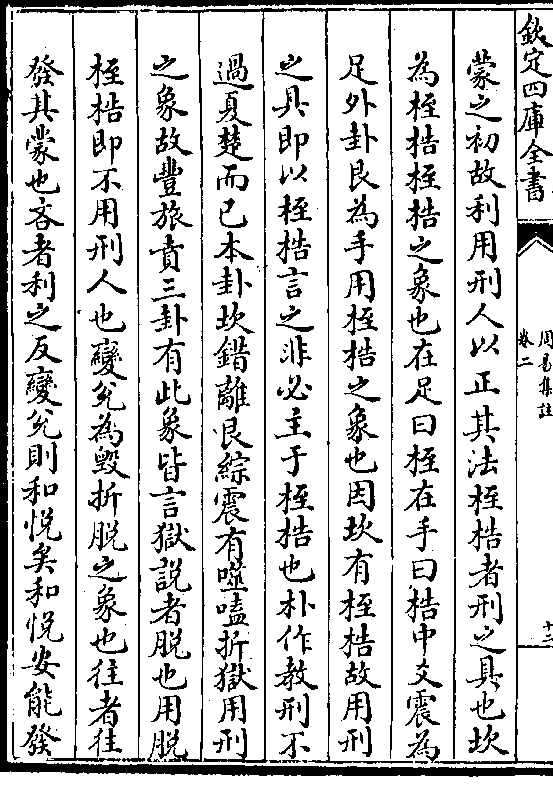 欽定四庫全書
周易集註
卷二
十三
蒙之初故利用刑人以正其法桎梏者刑之具也坎
為桎梏桎梏之象也在足曰桎在手曰梏中爻震為
足外卦艮為手用桎梏之象也因坎有桎梏故用刑
之具即以桎梏言之非必主于桎梏也朴作教刑不
過夏楚而已本卦坎錯離艮綜震有噬嗑折獄用刑
之象故豐旅賁三卦有此象皆言獄說者脫也用脫
桎梏即不用刑人也變兊為毀折脫之象也往者往
發其蒙也吝者利之反變兊則和悅矣和悅安能發